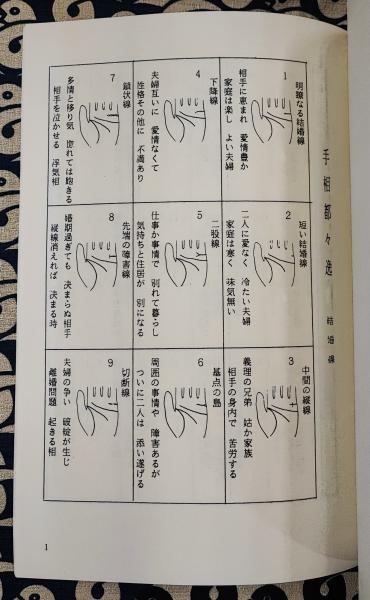 手相都々逸　結婚線
1
明瞭なる結婚線
相手に恵まれ　愛情豊か
家庭は楽し　よい夫婦
2
短い結婚線
二人に愛なく　冷たい夫婦
家庭は寒く　味気無い
3
中間の縦線
義理の兄弟　姑か家族
相手の身内で　苦労する
4
下降線
夫婦互いに　愛情なくて
性格その他に　不満あり
5
二股線
仕事か事情で　別れて暮らし
気持ちと住居が　別になる
6
基点の島
周囲の事情や　障害あるが
ついに二人は　添い遂げる
7
鎖状線
多情と移り気　惚れては飽きる
相手を泣かせる　浮気相
8
先端の障害線
婚期過ぎても　決まらぬ相手
縦線消えれば　決まる時
9
切断線
夫婦の争い　破綻が生じ
離婚問題　起きる相
1